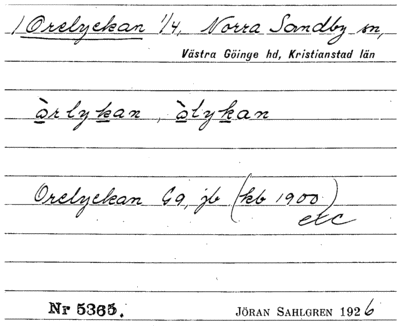 1 Orelyckan 1/4, Norra Sandby sn,
Västra Göinge hd, Kristianstad län
òrlykan, òlykan
Orelyckan Eg, jb (kb 1900)
etc
Nr 5365.
JÖRAN SAHLGREN 1926